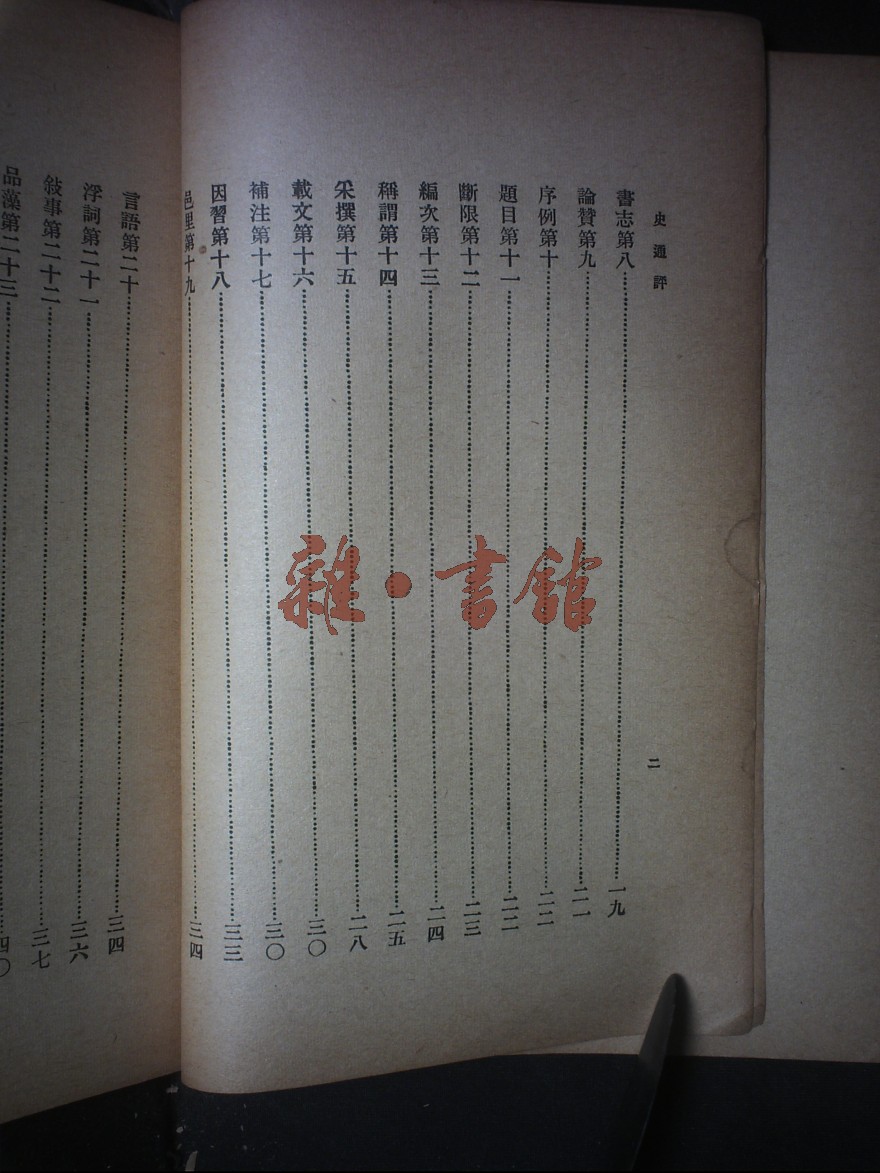 史通評
二
書志第八……一九
論贊第九……二一
序例第十……二二
題目第十一……二二
斷限第十二……二三
編次第十三……二四
稱謂第十四……二五
采撰第十五……二八
載文第十六……三〇
補注第十七……三〇
因習第十八……三三
邑里第十九……三四
言語第二十……三四
浮詞第二十一……三六
敍事第二十二……三七
品藻第二十三……四〇
雜·書館